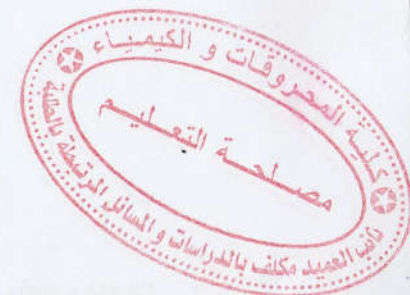 كلية المحروقات و الكيمياء
مصلحة التعليم
نائب العميد مكلف بالدراسات و المسائل المرتبطة بالطلبة